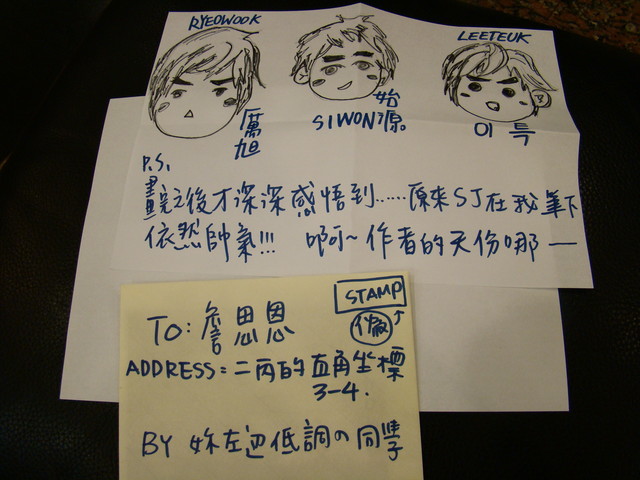 RYEOWOOK
厲旭
始源
SIWON
LEETEUK
이특
P.S.
畫完之後才深深感悟到......原來SJ在我筆下
依然帥氣!!! 啊~作者的天份哪—
STAMP
TO: 詹思恩
ADDRESS: 二丙的直角坐標
3-4.
BY 妳左迎低調の同學